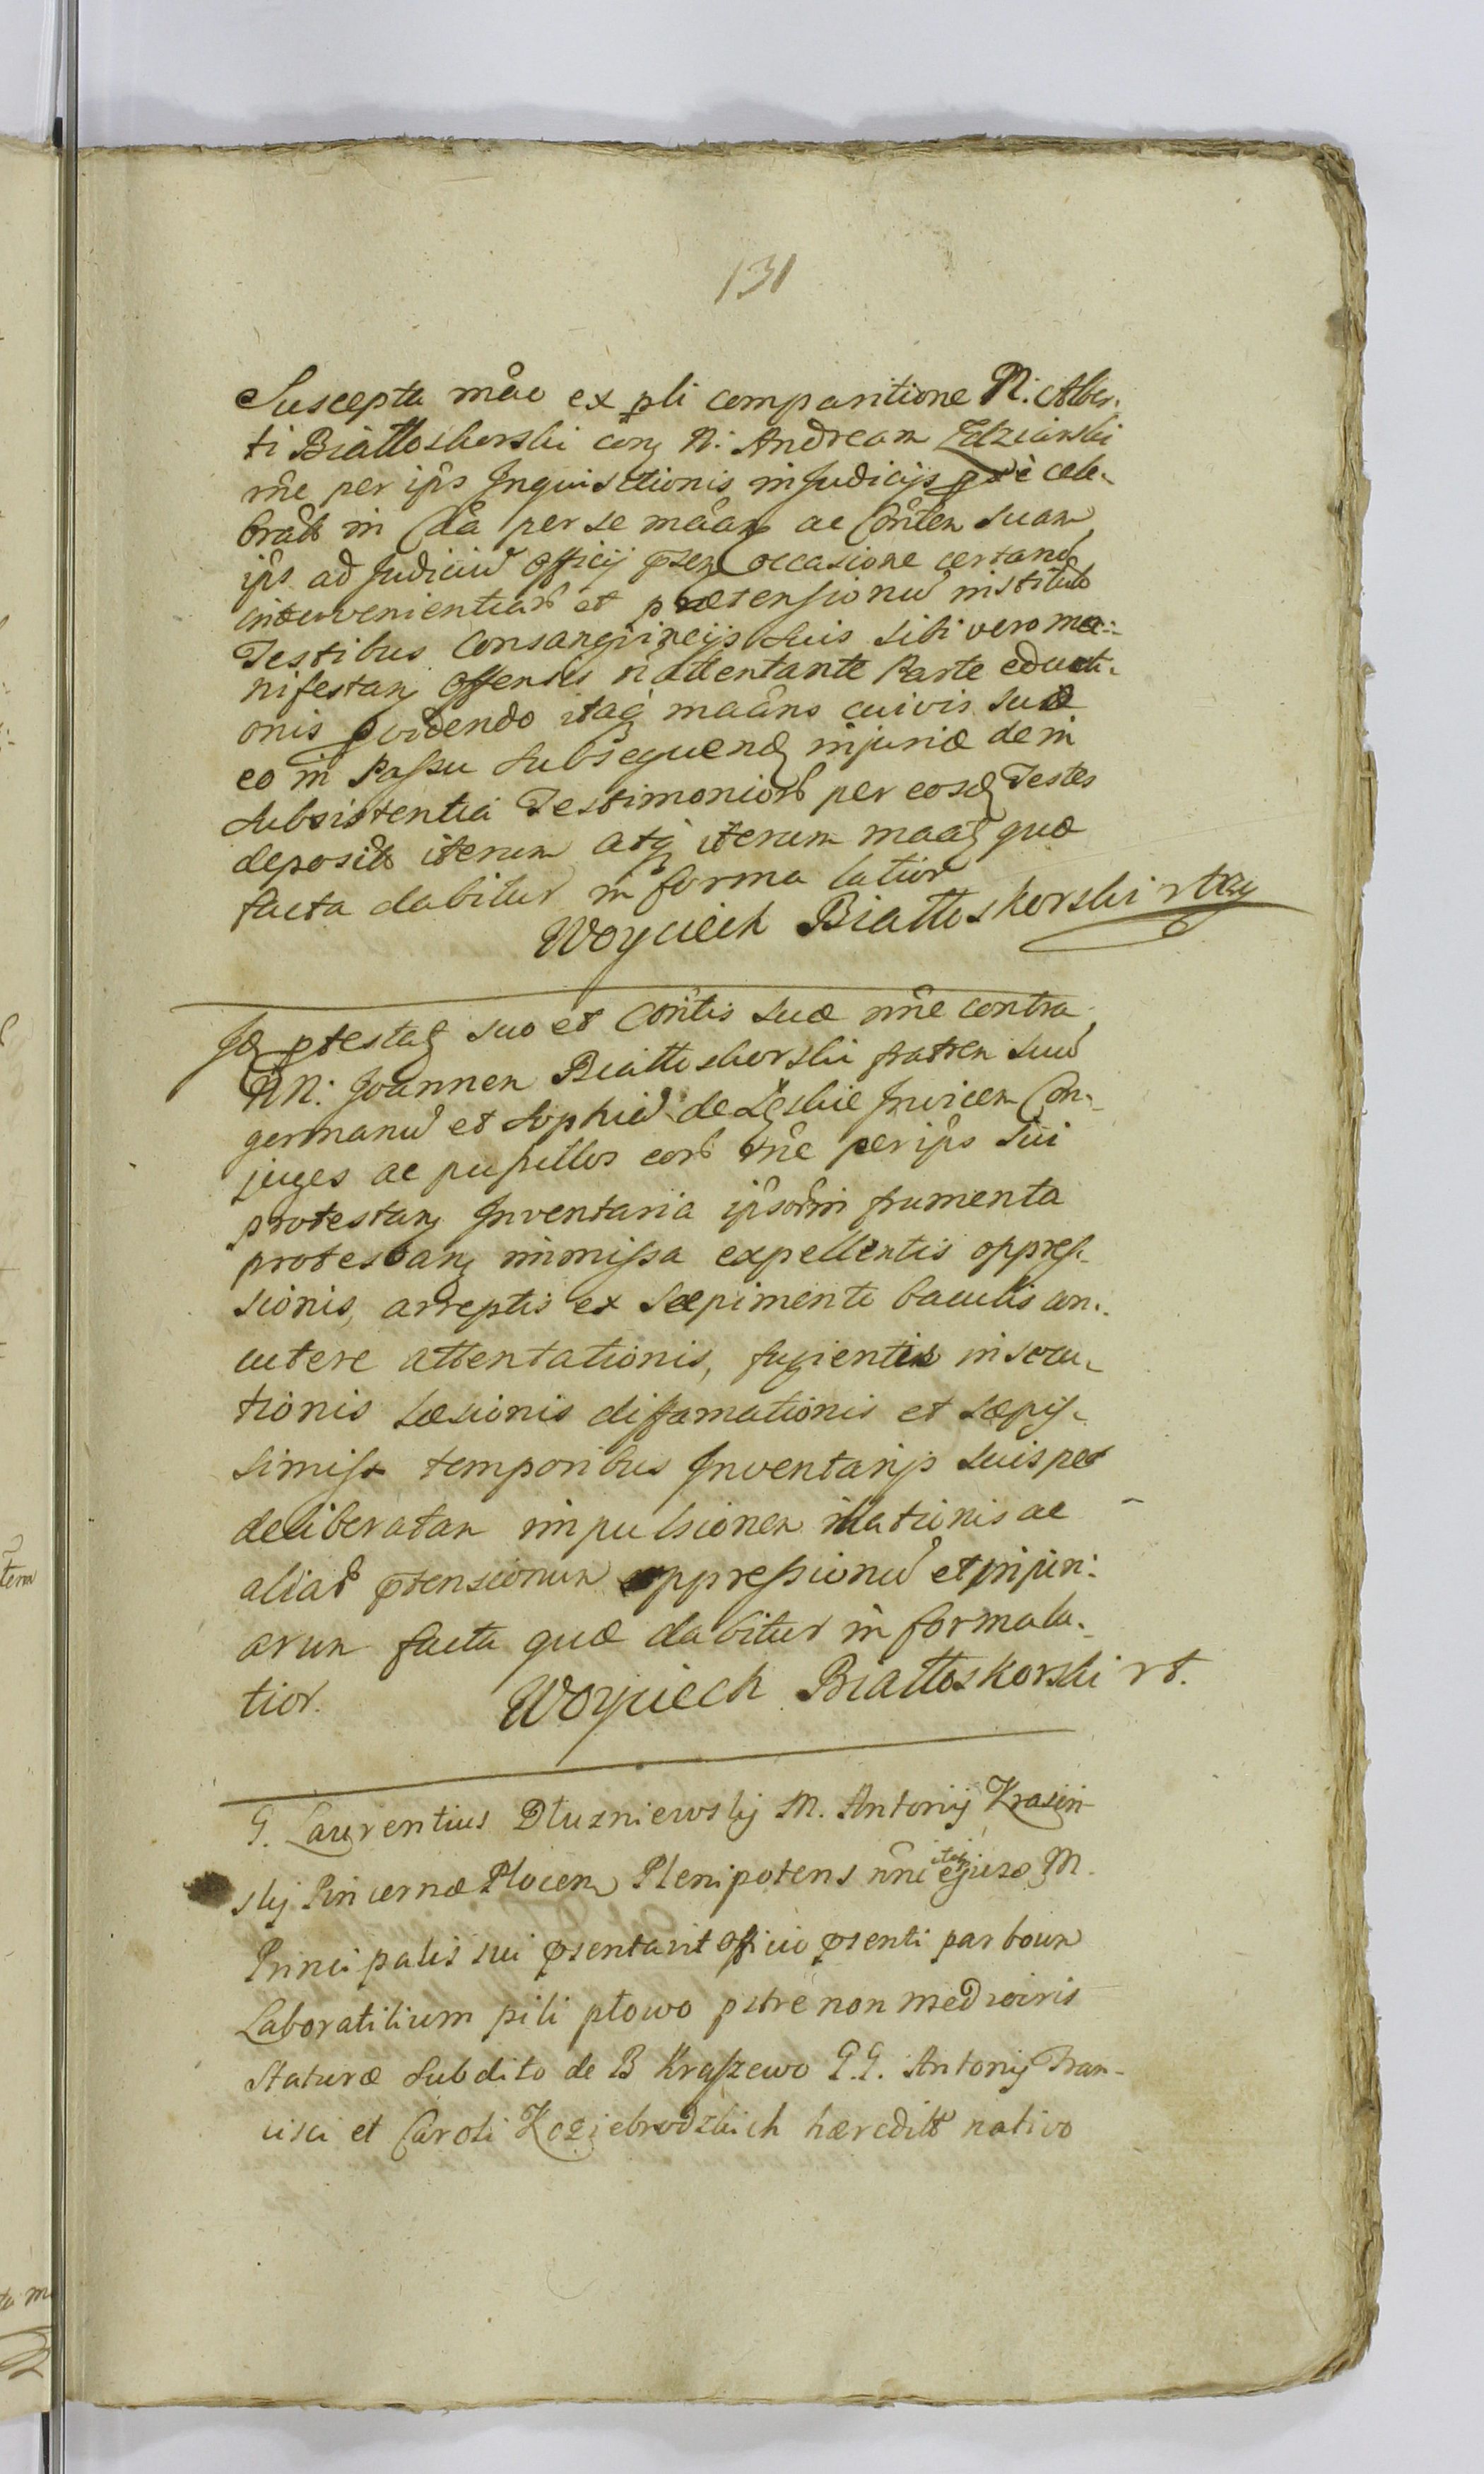 131
Suscepta mãe ex pli comparitione N: Alber-
ti Białłoskorski cony N: Andream
rñe per ip̃s Inquisitionis in Judicijs cele-
brat in per se ac Cõnten suam
ip̃s ad Judiciu Officij occasione certand
intervenientiar et prætensionu institut
Testibus Consangvineijs suis sibi vero ma-
nifestanz offensis attentante Parte educti-
onis pvidendo itaq maãns cuivis suæ
eo in Passu subsequend injuriæ de in
subsistentia Testimonior per eosd Testes
deposit iterum atq iterum quæ
facta dabitur in forma latior
Woyciech Białłoskorski
Id ptestat suo et Cõntis suæ nñe contra
NN: Joannem Białłoskorski fratrem suu
germanu et Sophia de Invicem Con-
juges ac pupillos eor rñe per ip̃s sui
protestanz Inventaria frumenta
protestanz immissa expellentis oppres-
sionis, arreptis ex sæpimento baculis con-
cutere attentationis, fugientis insecu-
tionis læsionis diffamationis et sæpis-
simis temporibus Inventarijs suis per
deliberatam impulsionem illationis ac
aliar ptensionum oppressionu et injuri-
arum facta quæ dabitur in forma la-
tior. Woyciech Białłoskorski rt.
G. Laurentius Dłuzniewskj M. Antonij Krasin-
skj Pincernæ Plocen Plenipotens nñe ejusd M.
Principalis sui psentavit officio psenti par boum
Laboratilium pili płowo non mediocris
Staturæ subdito de B Kraszewo G.G. Antonij Fran-
cisci et Caroli Koziebrodzkich hæredit nativo